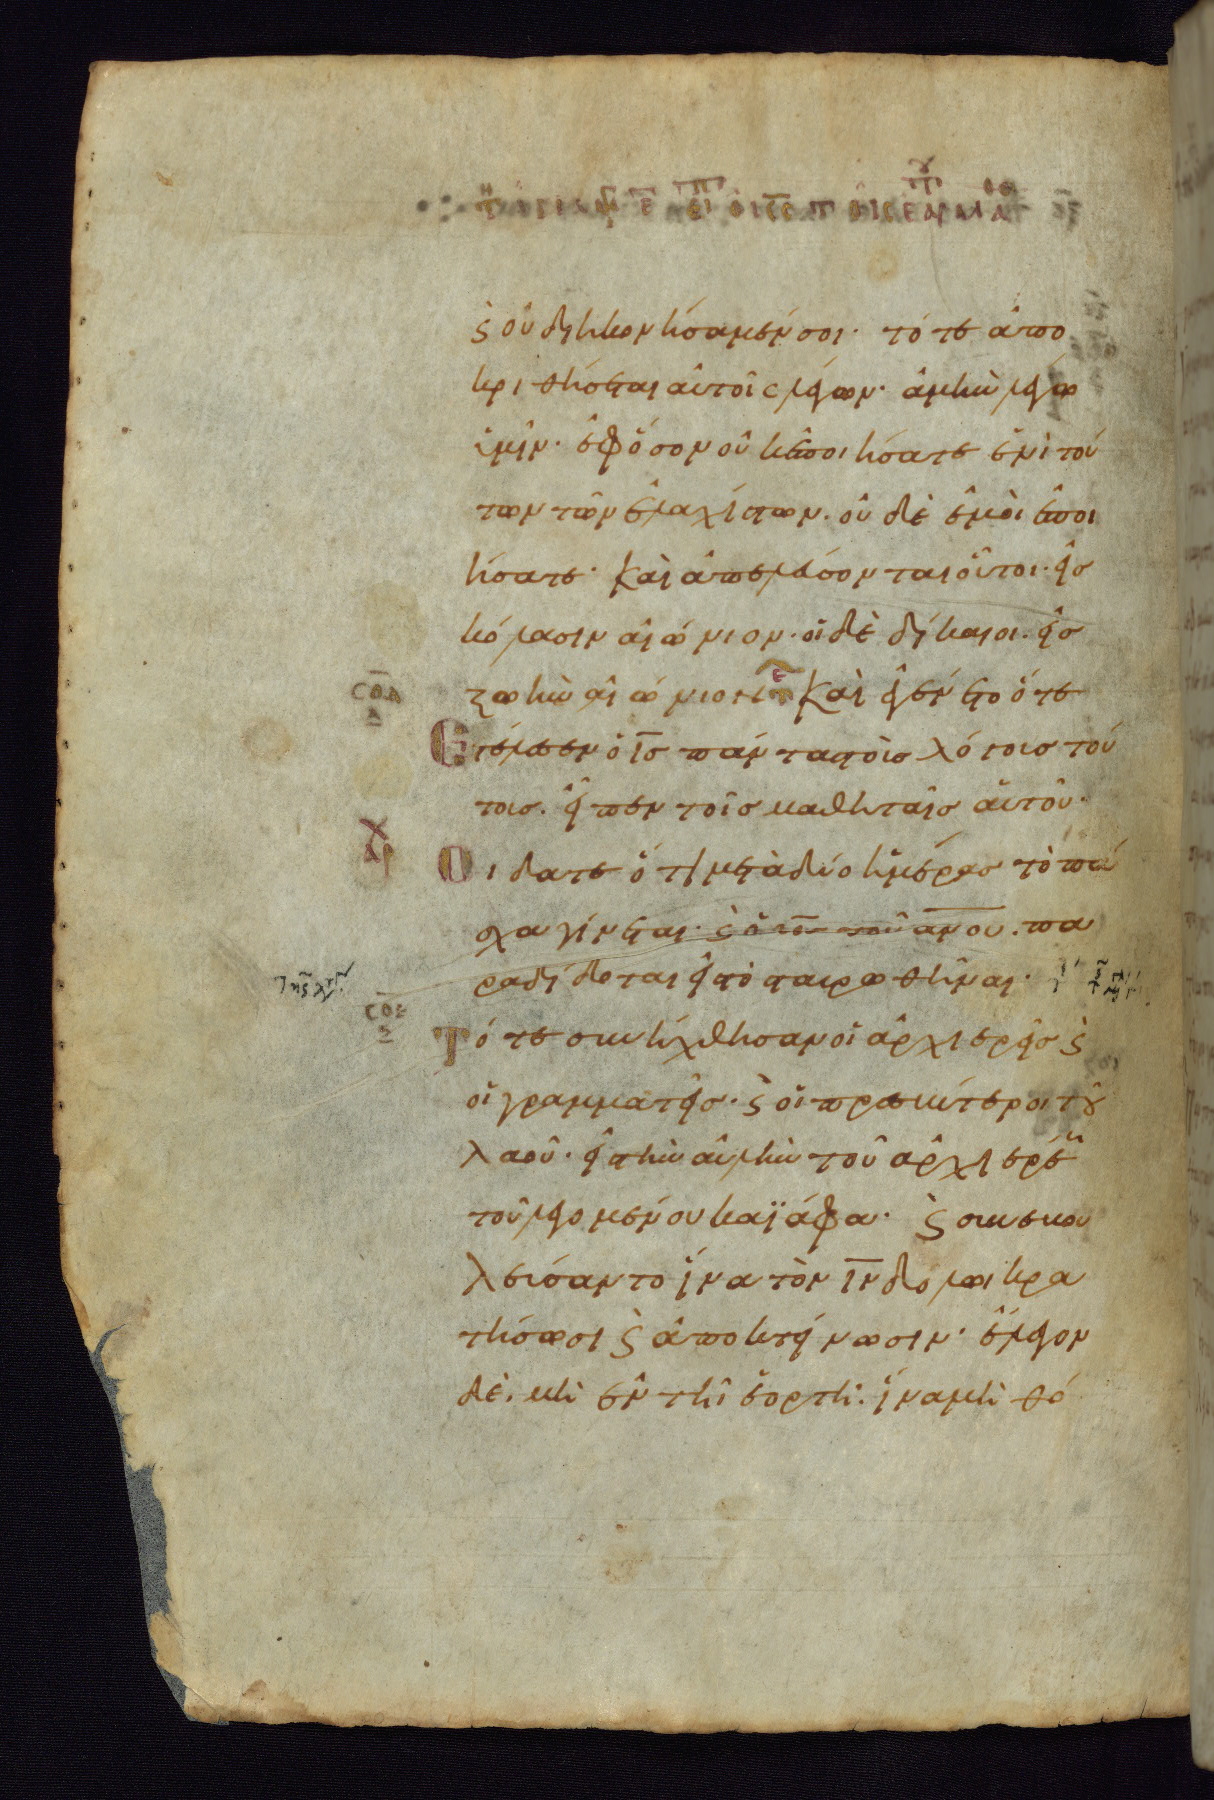 ϛ οὐ διηκονήσαμέν σοι· τότε ἀπο
κριθήσεται αὐτοῖς λέγων· ἀμὴν λέγω
ὑμῖν· ἐφόσον οὐκ ἐποιήσατε ἑνὶ τού
των τῶν ἐλαχίστων. οὐδὲ ἐμοὶ ἐποι
ήσατε· Καὶ ἀπελεύσονται οὗτοι. εἰσ
κόλασιν αἰώνιον. οἱ δὲ δίκαιοι. εἰσ
ζωὴν αἰώνιον· Καὶ ἐγένετο ὅτε
Ἐτέλεσεν ὁ ι̅σ̅ πάντας τοὺσ λόγουσ τού
τουσ. εἶπεν τοῖσ μαθηταῖσ αὐτοῦ·
Οἴδατε ὅτι μετὰ δύο ἡμέρασ τὸ πάσ
χα γίνεται· ϛ ὁ υ̅σ̅ τοῦ α̅ν̅ο̅υ̅. πα
ραδίδοται εἰσ τὸ σταυρωθῆναι·
σ̅ο̅δ̅
σ̅ο̅ε̅
Τότε συνήχθησαν οἱ ἀρχιερεῖσ ϛ
οἱ γραμματεῖσ· ϛ οἱ πρεσβύτεροι τοῦ
λαοῦ· εἰσ τὴν αὐλὴν τοῦ ἀρχιερέωσ
τοῦ λεγομένου καϊάφα· ϛ συνεβου
λεύσαντο ἵνα τὸν ι̅ν̅ δόλωι κρα
τήσωσι ϛ ἀποκτείνωσιν· ἔλεγον
δέ. μὴ ἐν τῆ ἑορτῆ. ἵνα μὴ θό